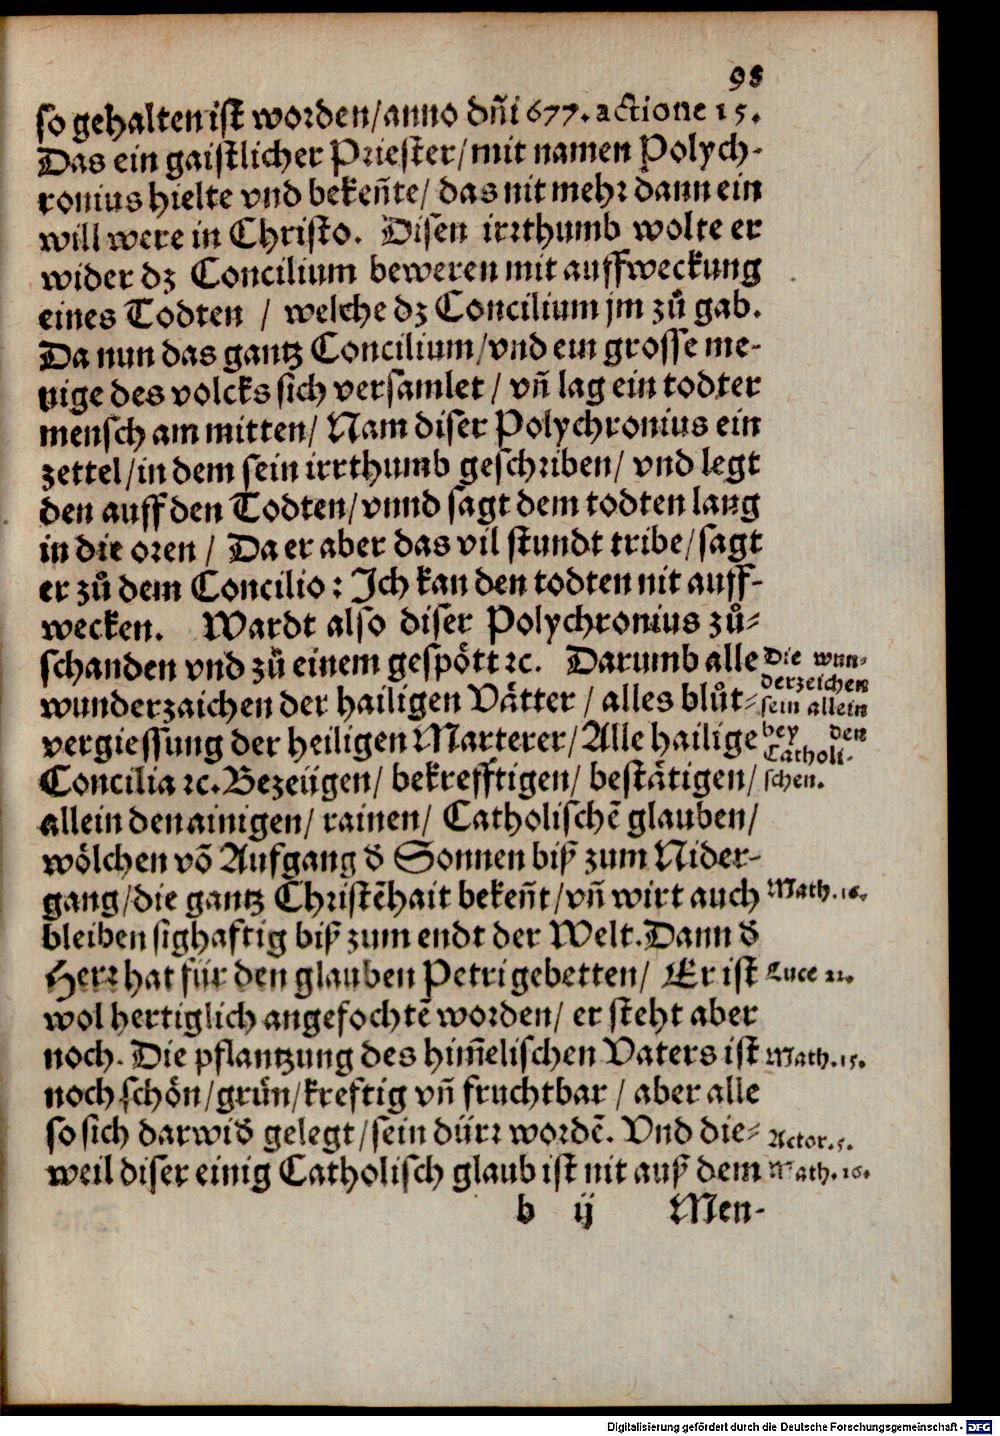 98
so gehalten ist worden/anno dñi 677. actione 15.
Das ein gaistlicher Priester/mit namen Polych-
ronius hielte vnd bekeñte/ das nit mehr dann ein
will were in Christo. Disen irrthumb wolte er
wider dz Concilium beweren mit auffweckung
eines Todten / welche dz Concilium jm zů gab.
Da nun das gantz Concilium/vnd ein grosse me-
nige des volcks sich versamlet / vñ lag ein todter
mensch am mitten/ Nam diser Polychronius ein
zettel/in dem sein irrthumb geschriben/ vnd legt
den auff den Todten/vnnd sagt dem todten lang
in die oren / Da er aber das vil stundt tribe/sagt
er zů dem Concilio: Ich kan den todten nit auff-
wecken. Wardt also diser Polychronius zů-
schanden vnd zů einem gespött ꝛc. Darumb alle
wunderzaichen der hailigen Vätter / alles blůt-
vergiessung der heiligen Marterer/Alle hailige
Concilia ꝛc. Bezeügen/ bekrefftigen/ bestätigen/
allein den ainigen/ rainen/ Catholischẽ glauben/
wölchen võ Aufgang d Sonnen biß zum Nider-
gang/die gantz Christẽhait bekeñt/vñ wirt auch
bleiben sighaftig biß zum endt der Welt. Dann d
Herr hat für den glauben Petri gebetten/ Er ist
wol hertiglich angefochtẽ worden/ er steht aber
noch. Die pflantzung des him̃elischen Vaters ist
noch schön/grün/kreftig vñ fruchtbar / aber alle
so sich darwid gelegt/sein dürr wordẽ. Vnd die-
weil diser einig Catholisch glaub ist nit auß dem
b ij Men-
Die wun-
derzeichen
sein allein
bey den
Catholi-
schen.
Math. 16.
Luce 22.
Math. 15.
Actor. 5.
Math. 16.
Digitalisierung gefördert durch die Deutsche Forschungsgemeinschaft - DFG